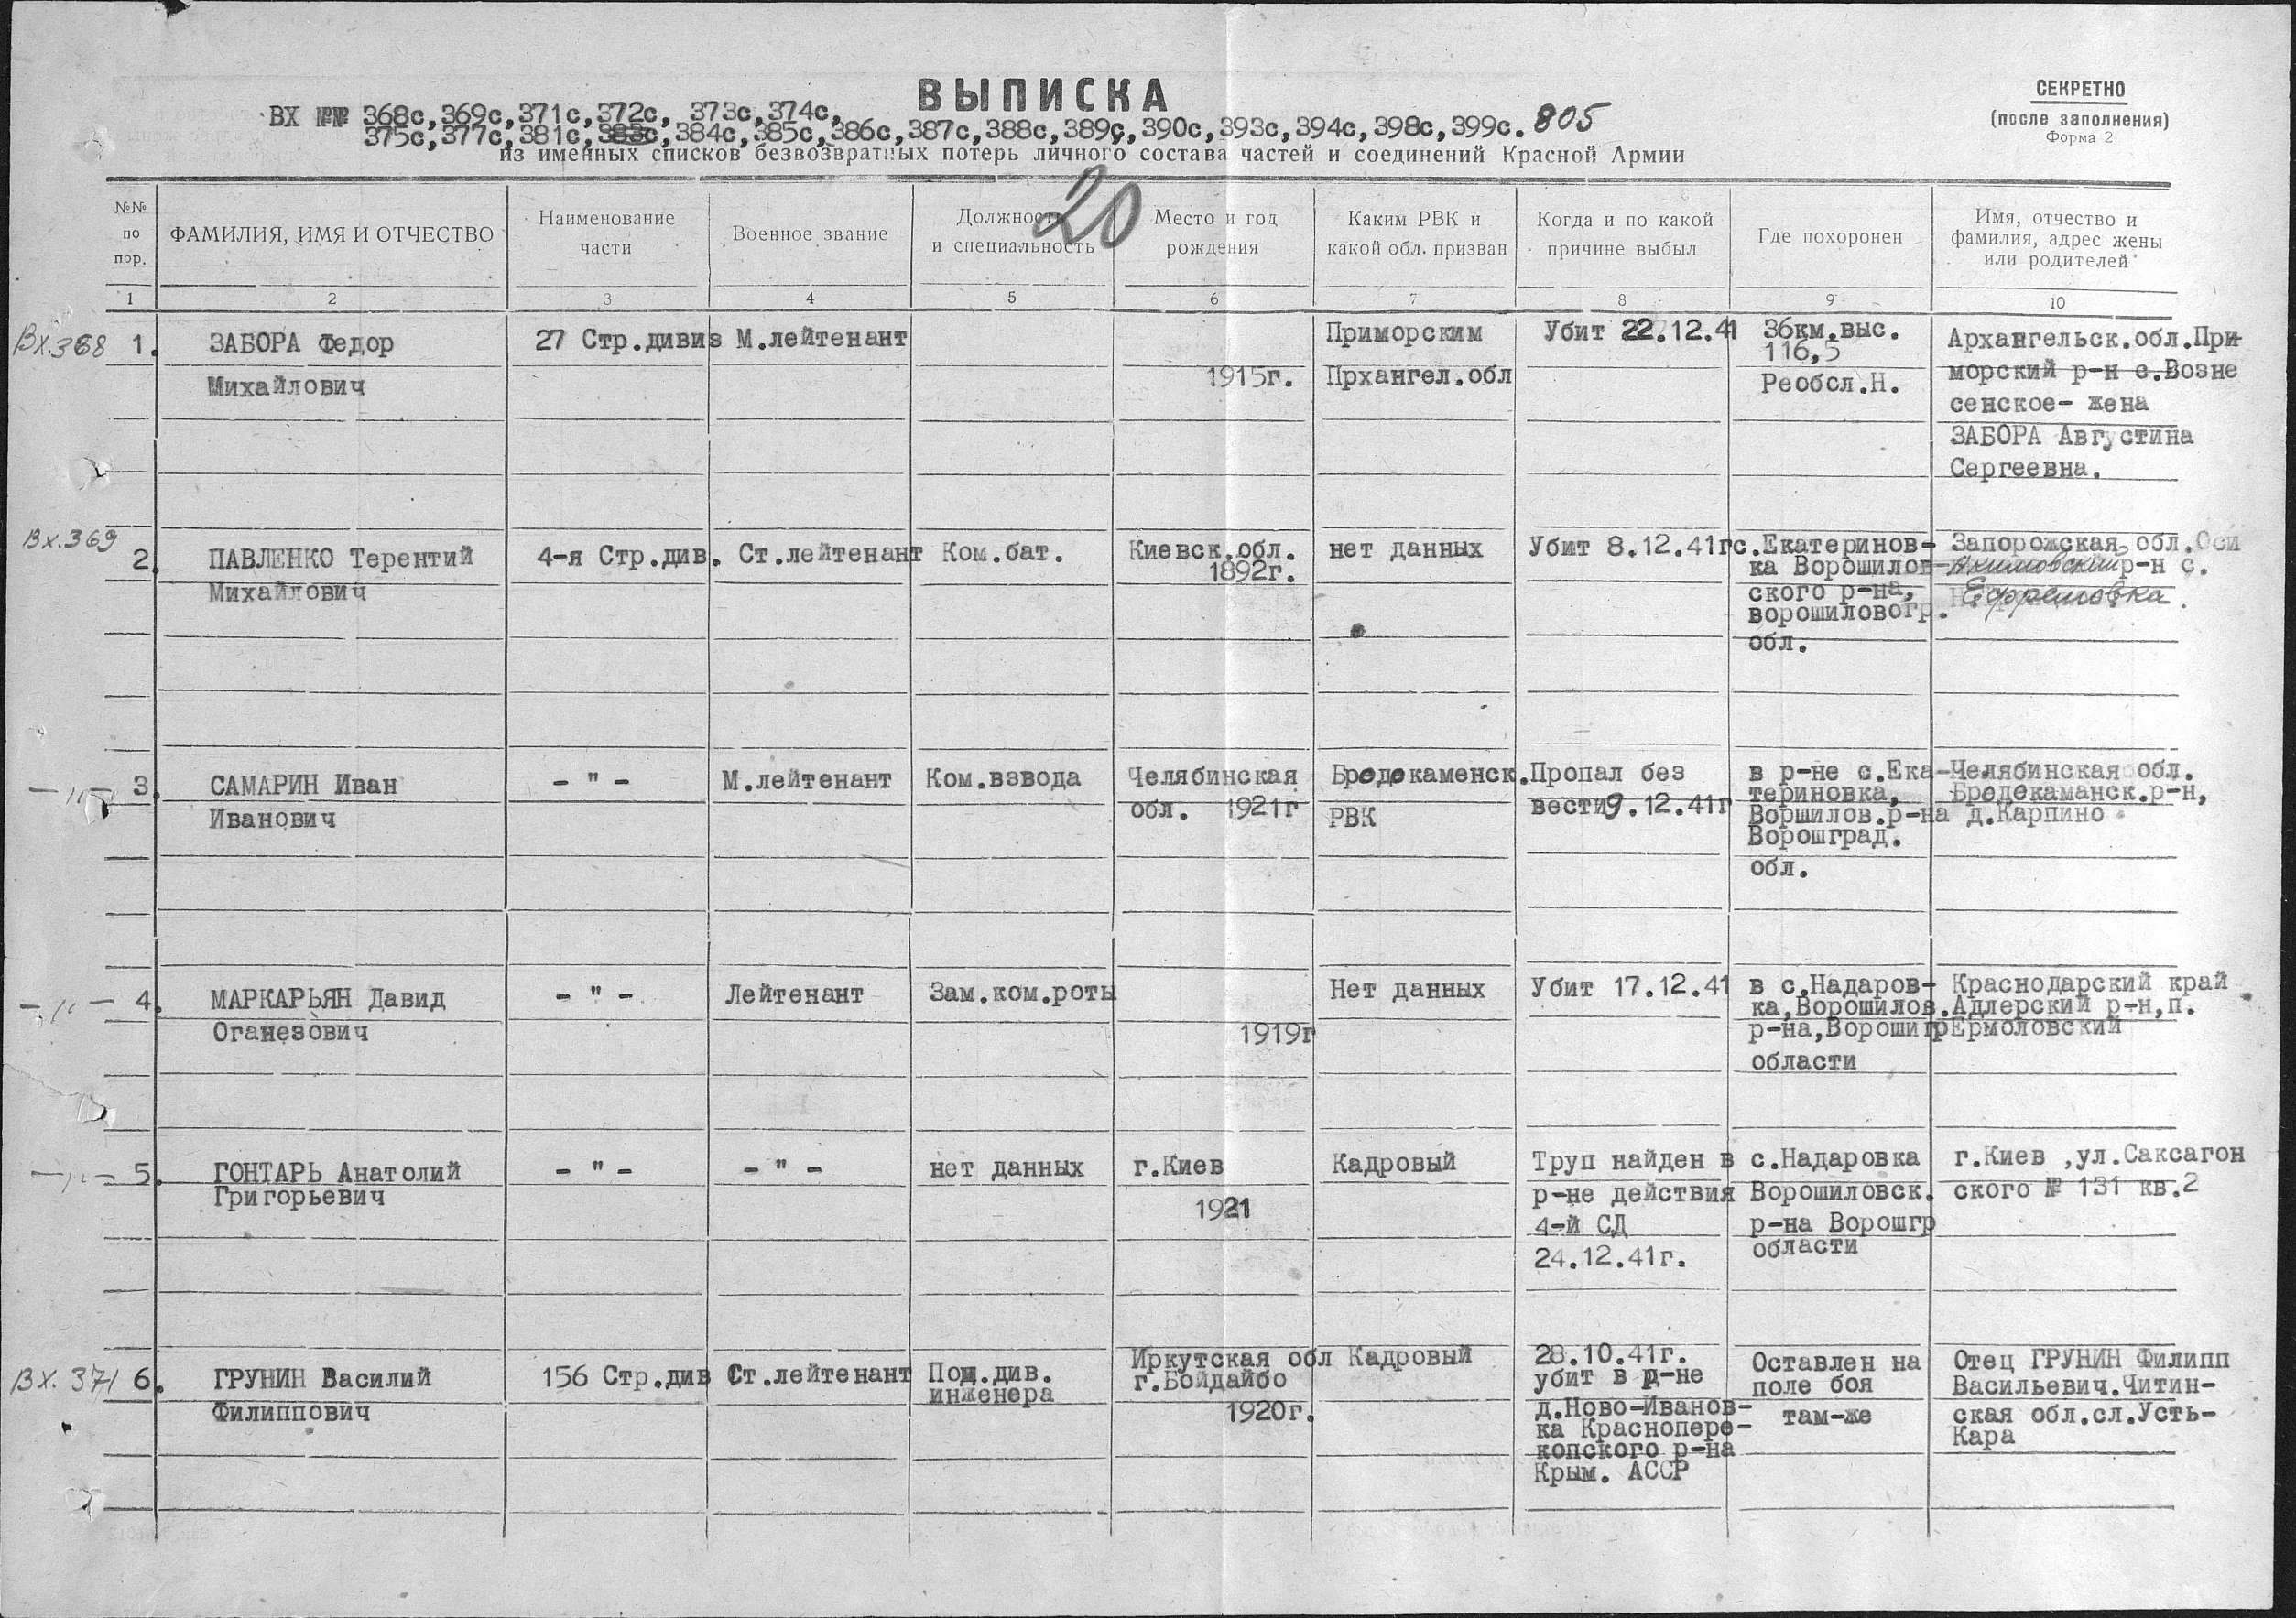 ВЫПИСКА
СЕКРЕТНО
(после заполнения)
Форма 2
ВХ №№ 368с,369с,371с,372с, 373с,374с,
375с,377с,381с,383с,384с,385с,386с,387с,388с,389с,390с,393с,394с,398с,399с. 805
из именных списков безвозвратных потерь личного состава частей и соединений Красной Армии
20
№№ по пор.
ФАМИЛИЯ, ИМЯ И ОТЧЕСТВО
Наименование части
Военное звание
Должность и специальность
Место и год рождения
Каким РВК и какой обл. призван
Когда и по какой причине выбыл
Где похоронен
Имя, отчество и фамилия, адрес жены или родителей
1 2 3 4 5 6 7 8 9 10
Вх.368 1.
ЗАБОРА Федор
Михайлович
27 Стр.дивиз
М.лейтенант
1915г.
Приморским
Прхангел.обл
Убит 22.12.41
36км.выс.
116,5
Реобсл.Н.
Архангельск.обл.При-
морский р-н с.Возне
сенское- жена
ЗАБОРА Августина
Сергеевна.
Вх.369
2.
ПАВЛЕНКО Терентий
Михайлович
4-я Стр.див.
Ст.лейтенант
Ком.бат.
Киевск.обл.
1892г.
нет данных
Убит 8.12.41г
с.Екатеринов-
ка Ворошилов-
ского р-на,
ворошиловогр.
обл.
Запорожская обл.Оси
Акимовский р-н с.
Ефремовка.
-"- 3.
САМАРИН Иван
Иванович
- " -
М.лейтенант
Ком.взвода
Челябинская
обл. 1921г
Бродокаменск.
РВК
Пропал без
вести 9.12.41г
в р-не с.Ека-
териновка,
Воршилов.р-на
Ворошград.
обл.
Челябинская обл.
Бродокаманск.р-н,
д.Карпино
-"- 4.
МАРКАРЬЯН Давид
Оганезович
- " -
Лейтенант
Зам.ком.роты
1919г
Нет данных
Убит 17.12.41
в с.Надаров-
ка,Ворошилов.
р-на,Ворошигр
области
Краснодарский край
Адлерский р-н,п.
Ермоловский
-"- 5.
ГОНТАРЬ Анатолий
Григорьевич
- " -
- " -
нет данных
г.Киев
1921
Кадровый
Труп найден в
р-не действия
4-й СД
24.12.41г.
с.Надаровка
Ворошиловск.
р-на Ворошгр
области
г.Киев ,ул.Саксагон
ского № 131 кв.2
Вх. 371 6.
ГРУНИН Василий
Филиппович
156 Стр.див
Ст.лейтенант
Пощ.див.
инженера
Иркутская обл
г.Бойдайбо
1920г.
Кадровый
28.10.41г.
убит в р-не
д.Ново-Иванов-
ка Краснопере-
копского р-на
Крым. АССР
Оставлен на
поле боя
там-же
Отец ГРУНИН Филипп
Васильевич.Читин-
ская обл.сл.Усть-
Кара